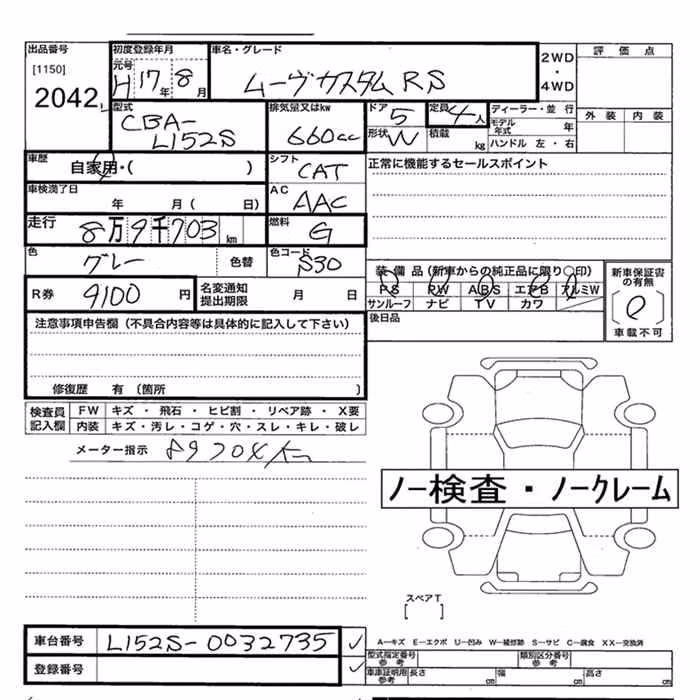 出品番号
[1150]
2042
初度登録年月
元号
H 17年 8月
車名・グレード
ムーヴカスタム RS
2WD
・
4WD
評価点
外装 内装
型式
CBA-
L152S
排気量又はkw
660cc
ドア
5
定員
4人
形状
W
積載
kg
ディーラー・並行
モデル年式 年
ハンドル 左・右
車歴
自家用・( )
シフト
CAT
正常に機能するセールスポイント
車検満了日
年 月( 日)
AC
AAC
走行
8万9千703km
燃料
G
色
グレー
色替
色コード
S30
装備品(新車からの純正品に限り○印)
PS PW ABS エアB アルミW
サンルーフ ナビ TV カワ
新車保証書の有無
車載不可
R券
9100円
名変通知
提出期限
月 日
後日品
注意事項申告欄(不具合内容等は具体的に記入して下さい)
修復歴 有(箇所 )
検査員
記入欄
FW キズ・飛石・ヒビ割・リペア跡・X要
内装 キズ・汚レ・コゲ・穴・スレ・キレ・破レ
メーター指示
ノー検査・ノークレーム
スペアT
[ ]
車台番号
L152S-0032735
登録番号
A―キズ E―エクボ U―凹み W―補修跡 S―サビ C―腐食 XX―交換済
型式指定番号
参考
類別区分番号
参考
車庫証明用
参考
長さ cm
幅 cm
高さ cm